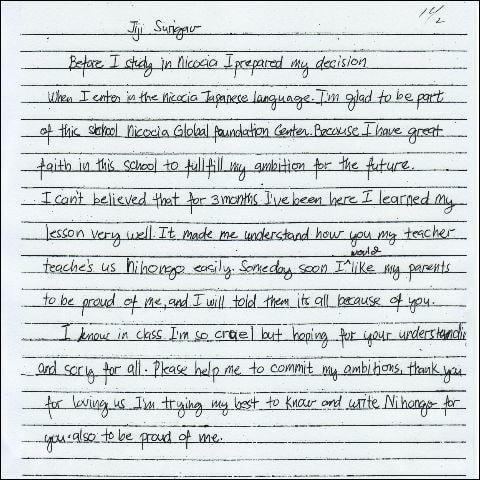 14/2
Jiji Surigao
Before I study in Nicocia I prepared my decision
When I enter in the nicocia Japanese language. I'm glad to be part
of this school Nicocia Global foundation Center. Because I have great
faith in this school to fullfill my ambition for the future.
I can't believed that for 3 months I've been here I learned my
lesson very well. It made me understand how you my teacher
teache's us Nihongo easily. Someday soon I would like my parents
to be proud of me, and I will told them its all because of you.
I know in class I'm so cruel but hoping for your understandin
and sorry for all. Please help me to commit my ambitions, thank you
for loving us I'm trying my best to know and write Nihongo for
you. also to be proud of me.